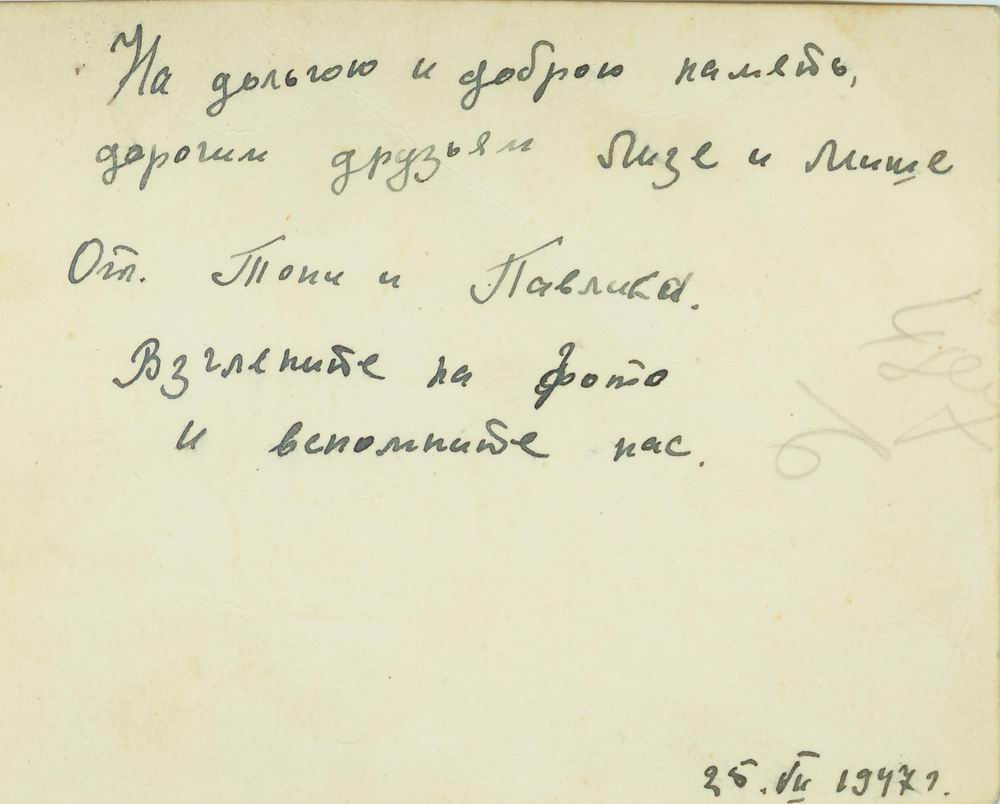 На дольгою и доброю память,
дорогим друзьям Лизе и Мише
От. Тони и Павлика.
Взглените на фото
и вспомните нас.
25. VII 1947 г.